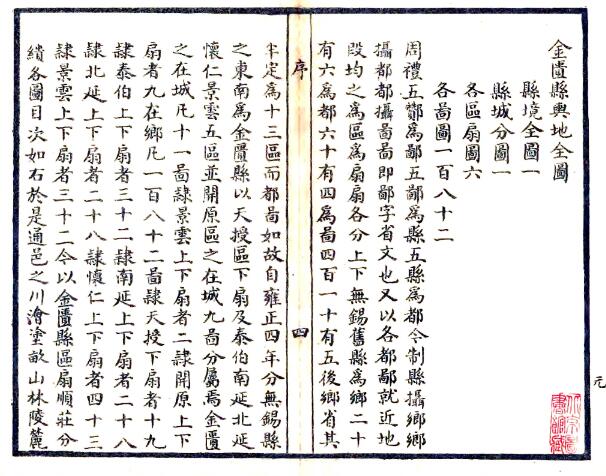 金匱縣輿地全圖
縣境全圖一
縣城分圖一
各區扇圖六
各啚圖一百八十二
周禮五酇為鄙五鄙為縣五縣為都今制縣攝鄉鄉
攝都都攝啚啚即鄙字省文也又以各都鄙就近地
段均之為區為扇扇各分上下無錫舊縣為鄉二十
有六為都六十有四為啚四百一十有五後鄉省其
序
四
半定為十三區而都啚如故自雍正四年分無錫縣
之東南為金匱縣以天授區下扇及泰伯南延北延
懷仁景雲五區並開原區之在城九啚分屬焉金匱
之在城凡十一啚隸景雲上下扇者二隸開原上下
扇者九在鄉凡一百八十二啚隸天授下扇者十九
隸泰伯上下扇者三十二隸南延上下扇者二十八
隸北延上下扇者二十八隸懷仁上下扇者四十三
隸景雲上下扇者三十二今以金匱縣區扇順莊分
繢各圖目次如右於是通邑之川澮塗畝山林陵麓
元